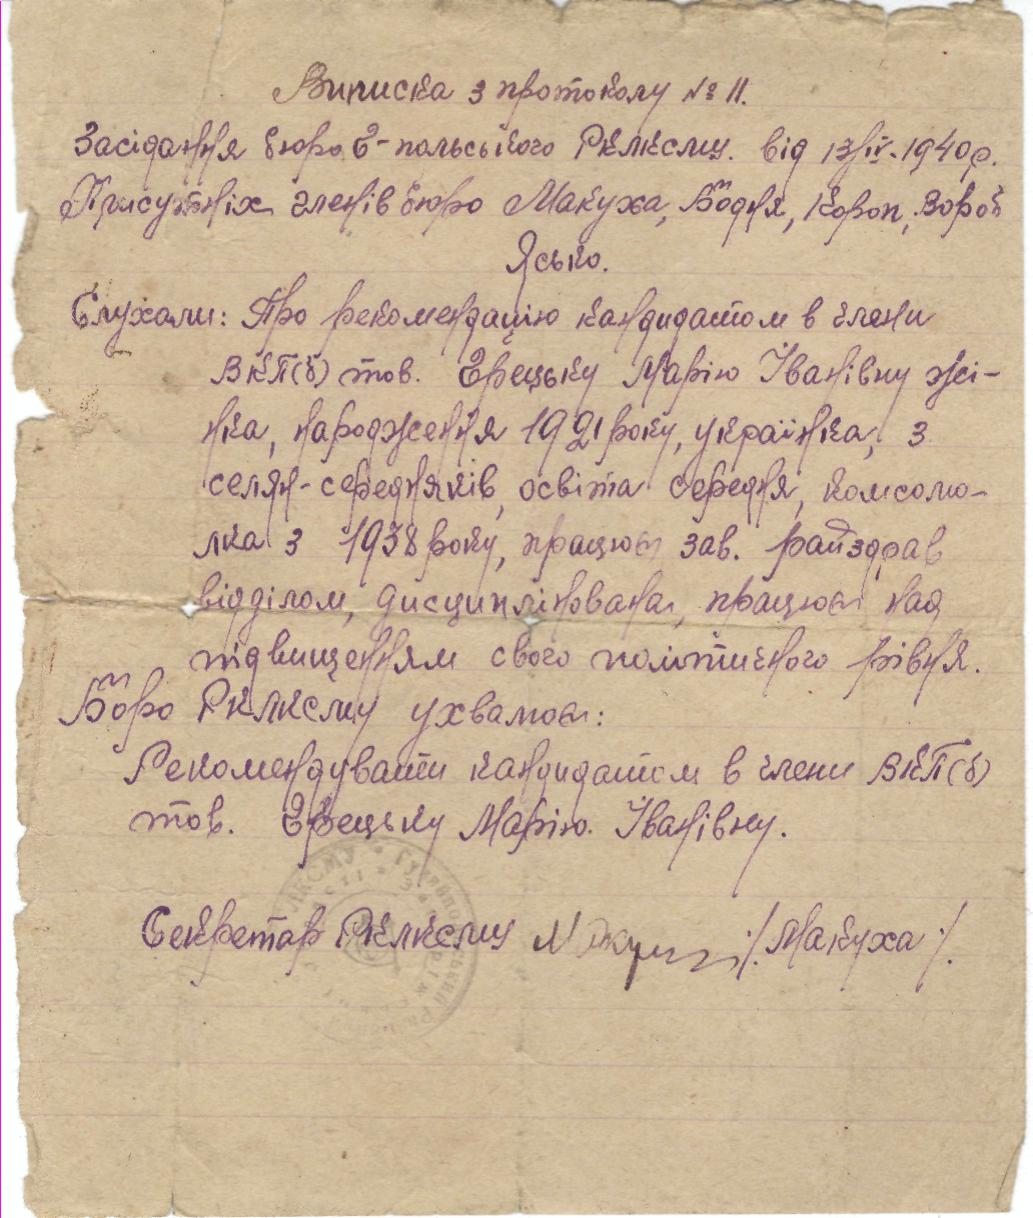 Виписка з протоколу № 11.
Засідання бюро Г-польського РКЛКСМУ. від 13/IV-1940р.
Присутніх членів бюро Макуха, Бодня, Короп, Вороб
Ясько.
Слухали: Про рекомендацію кандидатом в члени
ВКП(б) тов. Грецьку Марію Іванівну жі-
нка, народження 1921 року, українка, з
селян-середняків, освіта середня, комсомо-
лка з 1938 року, працює зав. райздрав
відділом, дисциплінована, працює над
підвищенням свого політичного рівня.
Бюро РКЛКСМУ ухвалює:
Рекомендувати кандидатом в члени ВКП(б)
тов. Грецьку Марію Іванівну.
Секретар РКЛКСМУ /Макуха/.